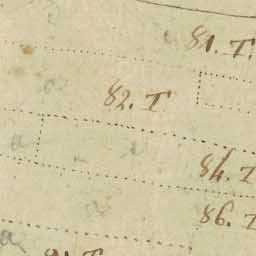 81. T.
82. T
84. T
86. T